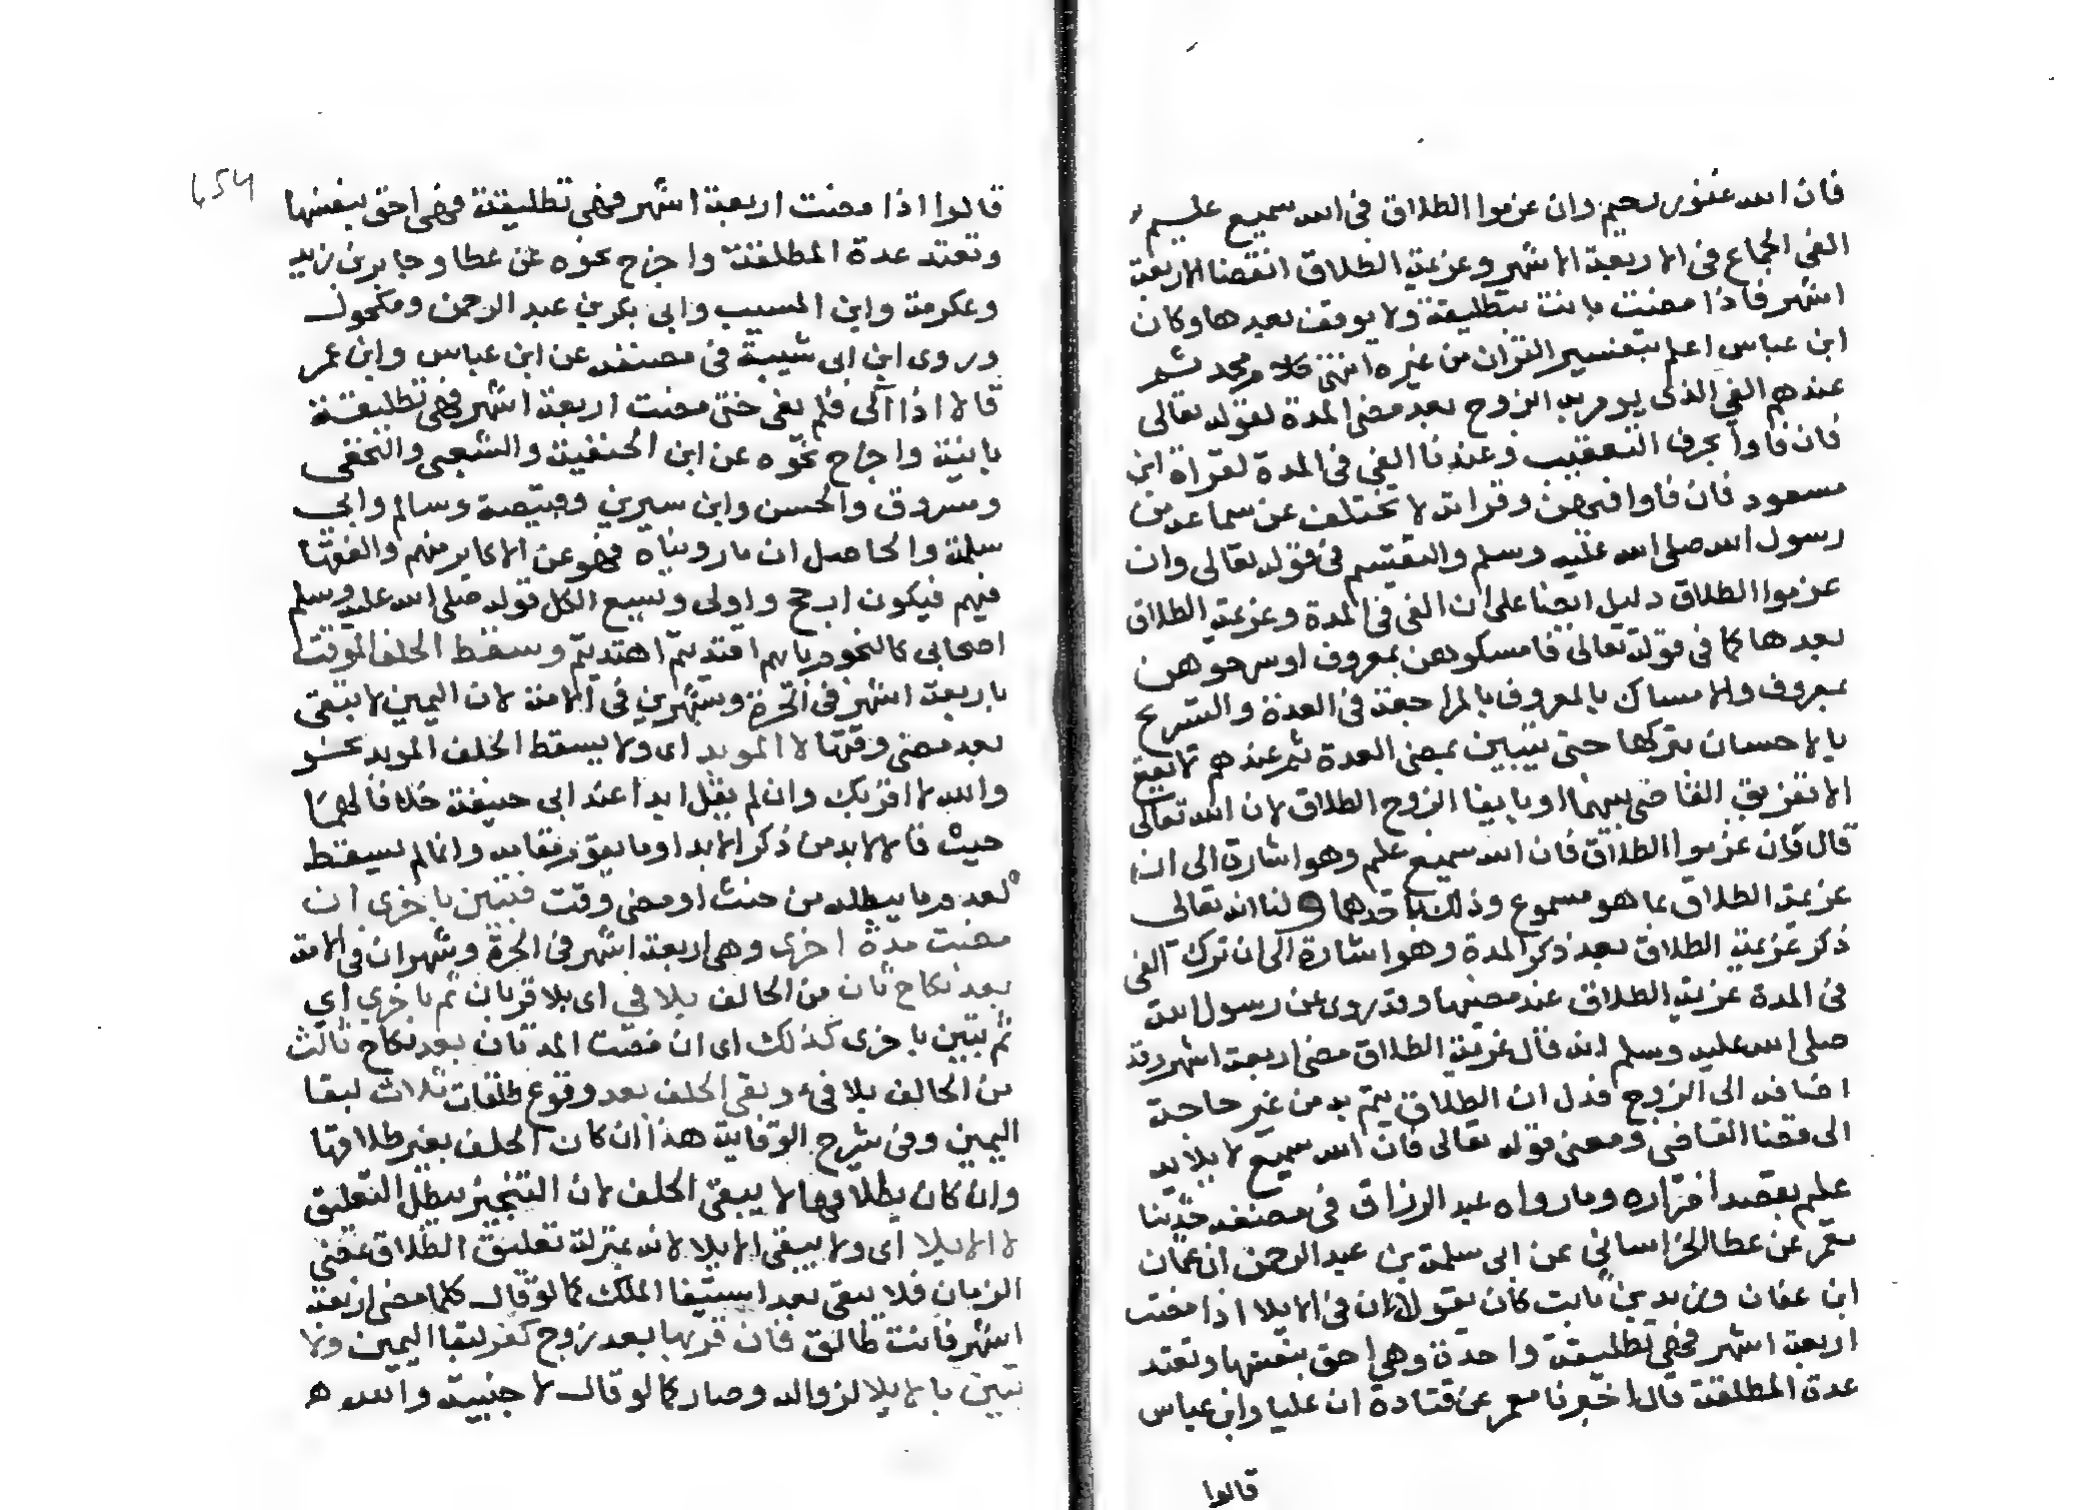 فان الله غفور رحيم وان عزموا الطلاق فان الله سميع عليم
الفى الجماع فى الاربعة الاشهر وعزيمة الطلاق انقضا الاربعة
اشهر فاذا مضت بانت بتطليقة ولا يوقف بعدها وكان
ابن عباس اعلم بتفسير القران من غيره انتهى كلام محمد ثم
عندهم الفى الذى يريد به الزوج بعد مضى المدة لقوله تعالى
فان فاوا بحرف التعقيب وعندنا الفى فى المدة لقراة ابن
مسعود فان فاوا فيهن وقراته لا تختلف عن سماعه من
رسول الله صلى الله عليه وسلم والتقسيم فى قوله تعالى وان
عزموا الطلاق دليل ايضا على ان الفى فى المدة وعزيمة الطلاق
بعدها كما فى قوله تعالى فامسكوهن بمعروف او سرحوهن
بمعروف والامساك بالمعروف بالمراجعة فى العدة والتسريح
بالاحسان بتركها حتى تبين بمضى العدة ثم عندهم لا يقع
الا بتفريق القاضى بينهما او بايقا الزوج الطلاق لان الله تعالى
قال فان عزموا الطلاق فان الله سميع عليم وهو اشارة الى ان
عزيمة الطلاق بما هو مسموع وذلك باحدهما ولنا انه تعالى
ذكر عزيمة الطلاق بعد ذكر المدة وهو اشارة الى ان ترك الفى
فى المدة عزيمة الطلاق عند مضيها وقد روى عن رسول الله
صلى الله عليه وسلم انه قال عزيمة الطلاق مضى اربعة اشهر وقد
اضافه الى الزوج فدل ان الطلاق يتم به من غير حاجة
الى قضا القاضى ومعنى قوله تعالى فان الله سميع لايلايه
عليم بقصد اضراره وما رواه عبد الرزاق فى مصنفه حدثنا
معمر عن عطا الخراسانى عن ابى سلمة بن عبد الرحمن ان عثمان
ابن عفان وزيد بن ثابت كان يقولان فى الايلا اذا مضت
اربعة اشهر فهى تطليقة واحدة وهى احق بنفسها وتعتد
عدة المطلقة قال اخبرنا معمر عن قتادة ان عليا وابن عباس
قالوا
قالوا اذا مضت اربعة اشهر فهى تطليقة فهى احق بنفسها
وتعتد عدة المطلقة واخرج نحوه عن عطا وجابر بن زيد
وعكرمة وابن المسيب وابى بكر بن عبد الرحمن ومكحول
وروى ابن ابى شيبة فى مصنفه عن ابن عباس وابن عمر
قالا اذا آلى فلم يفى حتى مضت اربعة اشهر فهى تطليقة
باينة واخرج نحوه عن ابن الحنفية والشعبى والنخعى
ومسروق والحسن وابن سيرين وقبيصة وسالم وابى
سلمة والحاصل ان ما رويناه فهو عن الاكابر منهم والفقها
فيهم فيكون ارجح واولى ويسع الكل قوله صلى الله عليه وسلم
اصحابى كالنجوم بايهم اقتديتم اهتديتم وسقط الحلف الموقت
باربعة اشهر فى الحرة وشهرين فى الامة لان اليمين لا تبقى
بعد مضى وقتها لا المويد اى ولا يسقط الحلف المويد نحو
والله لا اقربك وان لم يقل ابدا عند ابى حنيفة خلافا لهما
حيث قالا لابد من ذكر الابد او ما يقوم مقامه وانما لم يسقط
لعدم ما يبطله من حنث او مضى وقت فتبين باخرى ان
مضت مدة اخرى وهى اربعة اشهر فى الحرة وشهران فى الامة
بعد نكاح ثان من الحالف بلا فى اى بلا قربان ثم باخرى اى
ثم تبين باخرى كذلك اى ان مضت المدتان بعد نكاح ثالث
من الحالف بلا فىء وبقى الحلف بعد وقوع طلقات ثلاث لبقا
اليمين وفى شرح الوقاية هذا ان كان الحلف بغير طلاقها
وان كان بطلاقها لا يبقى الحلف لان التنجيز يبطل التعليق
لا الايلا اى ولا يبقى الايلا لانه بمنزلة تعليق الطلاق بمضى
الزمان فلا يبقى بعد استيفا الملك كما لو قال كلما مضى اربعة
اشهر فانت طالق فان قربها بعد زوج كفر لبقا اليمين ولا
تبين بالايلا لزواله وصار كما لو قال لاجنبية والله